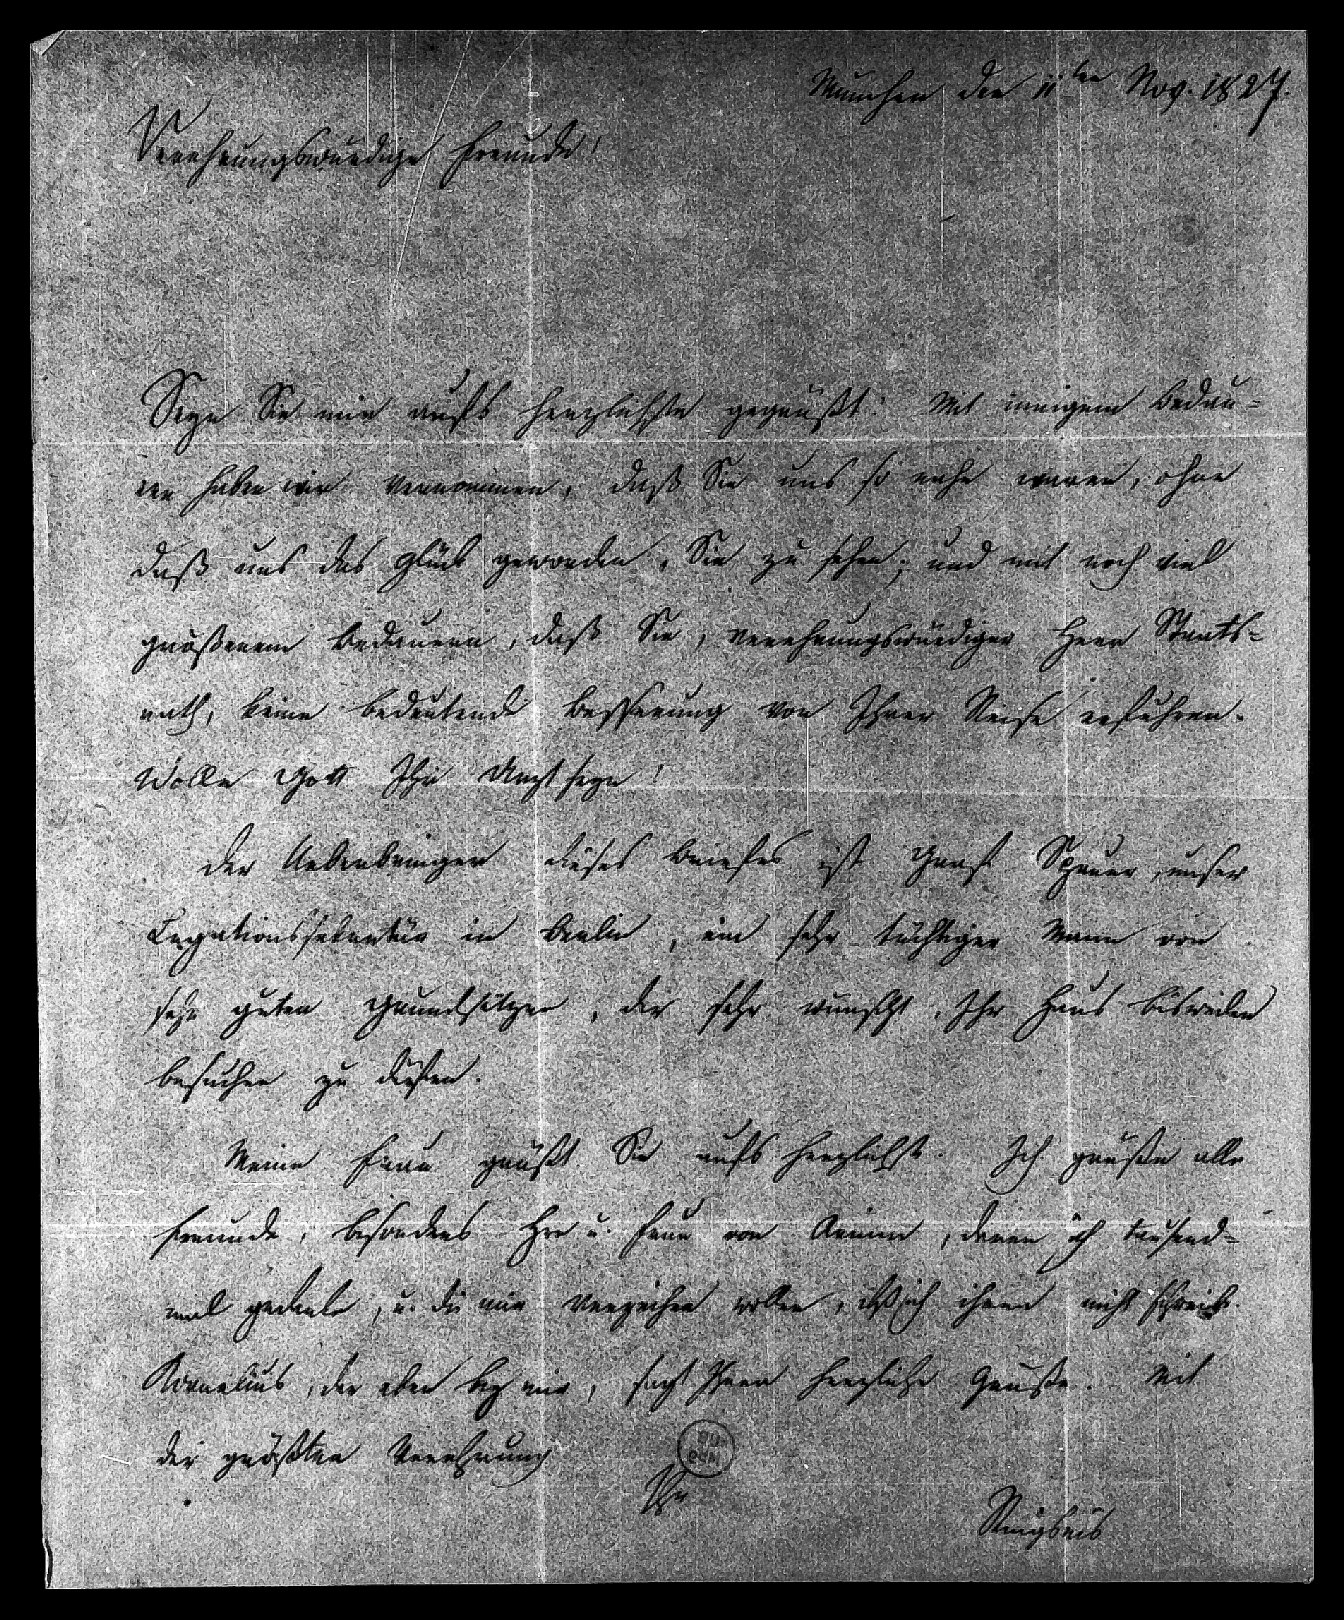 München den 11ten Nov. 1827.
Verehrungswürdiger Freund!
Seyn Sie mir aufs herzlichste gegrüßt! Mit innigem Bedau-
ern haben wir vernommen, daß Sie uns so nahe waren, ohne
daß uns das Glück geworden, Sie zu sehen; und mit noch viel
größerem Bedauern, daß Sie, verehrungswürdiger Herr Staats-
rath, keine bedeutende Besserung von Ihrer Reise erfuhren.
Wolle Gott Ihr Arzt seyn!
Der Ueberbringer dieses Briefes ist Graf Spreur, unser
Legationssekretär in Berlin, ein sehr tüchtiger Mann von
sehr guten Grundsätzen, der sehr wünscht, Ihr Haus bisweilen
besuchen zu dürfen.
Meine Frau grüßt Sie aufs herzlichste. Ich grüße alle
Freunde, besonders Hrn u. Frau von Arnim, deren ich tausend-
mal gedenke, u. die mir verzeihen wollen, daß ich ihnen nicht schreibe.
Kornelius, der eben bey mir, sagt Ihnen herzliche Grüße. Mit
der größten Verehrung
Ihr
Ringseis